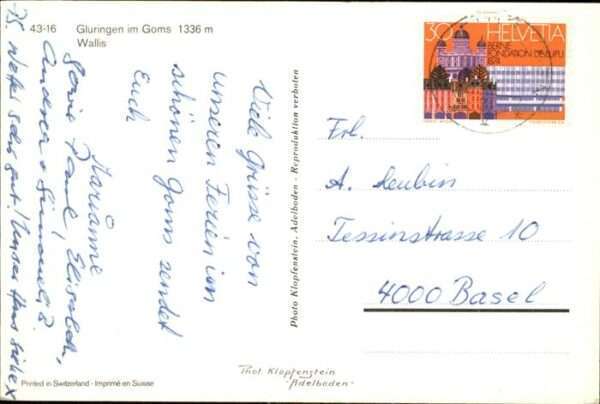 43-16 Gluringen im Goms 1336 m
Wallis
Viele Grüsse von
unseren Ferien im
schönen Goms sendet
Euch
Marianne
sowie Paul, Elisabeth,
Andrea + Simone
P.S. Wetter sehr gut! Unser Haus siehe x
Photo Klopfenstein, Adelboden - Reproduktion verboten
30 HELVETIA
BERNE
FONDATION DE L'UPU
1874
Frl.
A. Leubin
Tessinstrasse 10
4000 Basel
Phot. Klopfenstein
"Adelboden"
Printed in Switzerland - Imprimé en Suisse